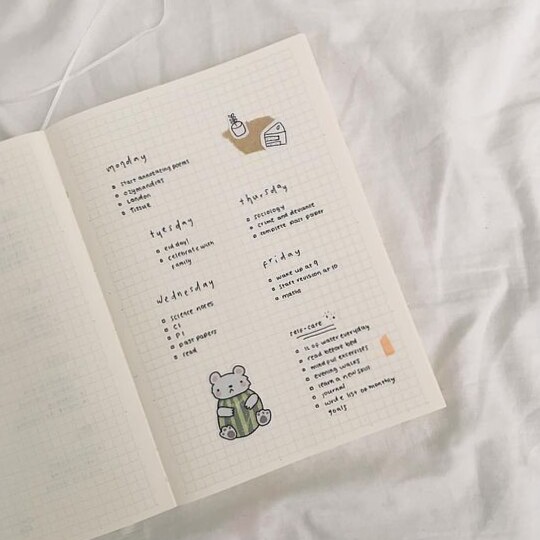 monday
start annotating poems
ozymandias
London
tissue
tuesday
eid day!
celebrate with
family
wednesday
science notes
C1
P1
past papers
read
thursday
sociology
crime and deviance
complete past paper
friday
wake up at 9
start revision at 10
maths
self-care
1L of water everyday
read before bed
mindful excercises
evening walks
learn a new skill
journal
write list of monthly
goals